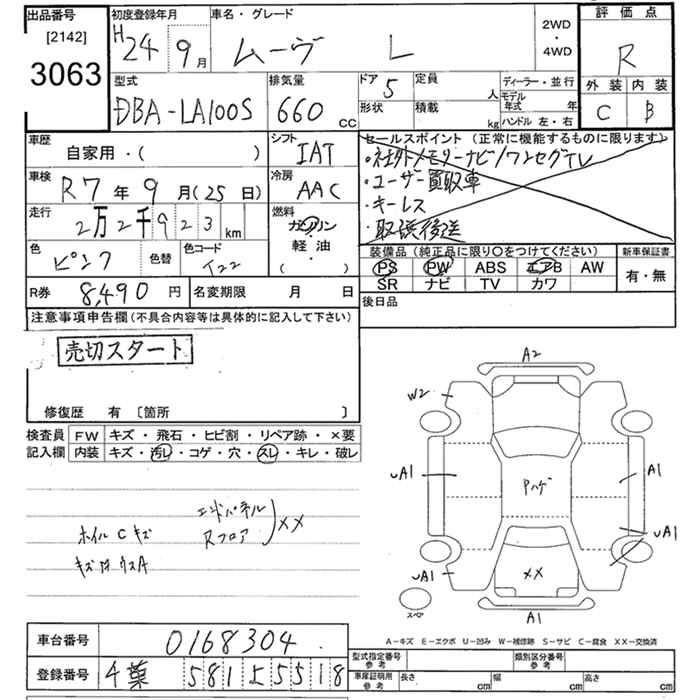 出品番号 初度登録年月 車名・グレード 2WD・4WD 評価点
[2142] H24 9月 ムーヴ L R
3063 外装 内装
C B
型式 排気量 ドア 5 定員 人 ディーラー・並行
モデル年式 年
DBA-LA100S 660cc 形状 積載 kg ハンドル 左・右
車歴 シフト セールスポイント (正常に機能するものに限ります)
自家用・( ) IAT ・社外メモリーナビ/ワンセグTV
車検 冷房 ・ユーザー買取車
R7年9月(25日) AAC ・キーレス
走行 燃料 ・取説後送
2万2千923km ガソリン
軽油・
( )
色 ピンク 色替 色コード T22
装備品 (純正品に限り○をつけてください) 新車保証書
PS PW ABS エアB AW 有・無
SR ナビ TV カワ
R券 8,490円 名変期限 月 日 後日品
注意事項申告欄 (不具合内容等は具体的に記入して下さい)
売切スタート
修復歴 有 [箇所 ]
検査員記入欄 FW キズ・飛石・ヒビ割・リペア跡・×要
内装 キズ・汚レ・コゲ・穴・スレ・キレ・破レ
エンドパネル
Rフロア
XX
ホイルCキズ
A2
W2
UA1 A1
Pハゲ
UA1
UA1 XX
スペア A1
A-キズ E-エクボ U-凹み W-補修跡 S-サビ C-腐食 XX-交換済
車台番号 0168304
登録番号 千葉 581 5518
型式指定番号 参考 類別区分番号 参考
車庫証明用 参考 長さ cm 幅 cm 高さ cm